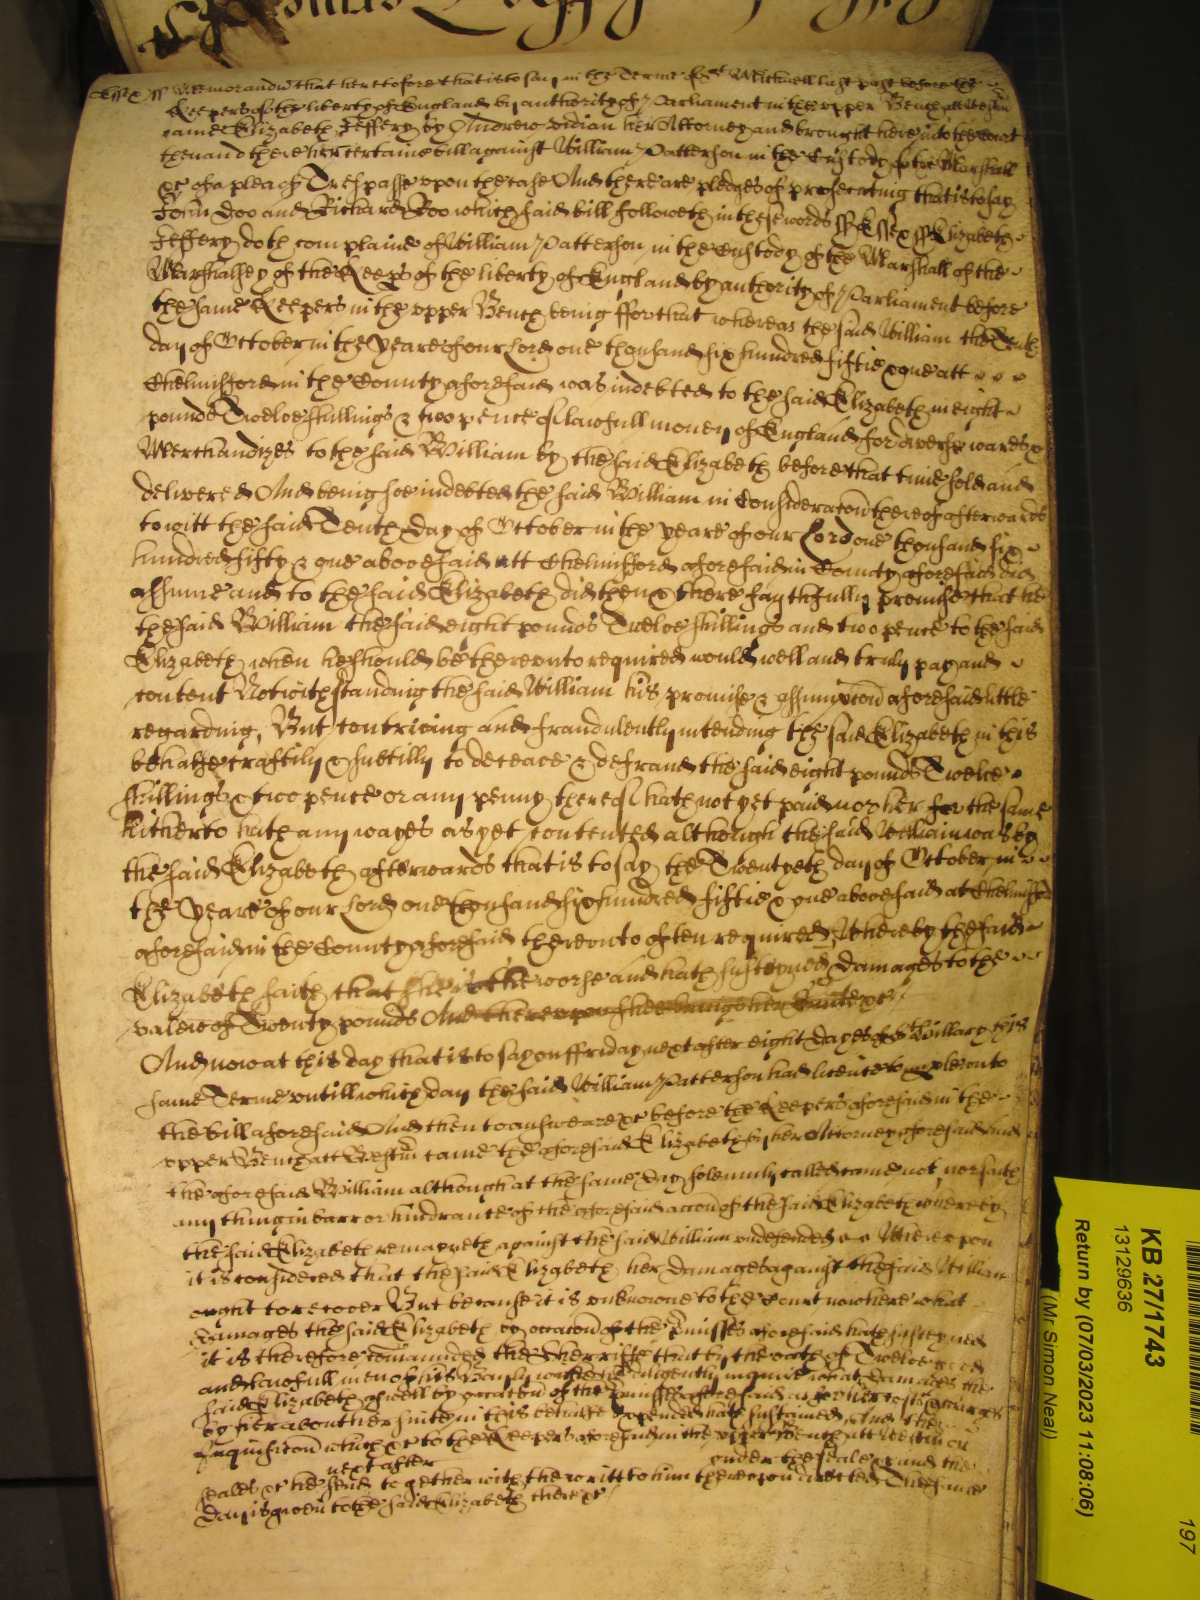 Essex ss Memorandu that heretofore that is to say in the Terme of St Michaell last past before the
Keepers of the liberty of England by authority of Parliament in the upper Bench att Westm
came Elizabeth Jeffery by Andrew Vidian her Attorney and brought here into the Court
then and there her certaine bill against William Patterson in the Custody of the Marshall
&c of a plea of Trespasse upon the case And there are pledges of prosecuting that is to say
John Doo and Richard Roo which said bill followeth in these words ss Essex ss Elizabeth
Jeffery doth complaine of William Patterson in the Custody of the Marshall of the
Marshalsey of the Keeps of the liberty of England by authority of Parliament before
the same Keepers in the upper Bench being ffor that whereas the said William the Tenth
day of October in the yeare of our Lord one thousand six hundred fiftie & one att
Chelmisford in the County aforesaid was indebted to the said Elizabeth in eight
pounds Twelve shillings & two pence of lawfull money of England for divers wares &
Merchandizes to the said William by the said Elizabeth before that time sold and
delivered And being soe indebted the said William in Consideracon thereof afterwards
to witt the said Tenth day of October in the yeare of our Lord one thousand six
hundred fifty & one abovesaid att Chelmisford aforesaid in County aforesaid did
assume and to the said Elizabeth did then & there faythfully promise that he
the said William the said eight pounds Twelve shillings and two pence to the said
Elizabeth when he should be thereunto required would well and truly pay and
content Notwithstanding the said William his promise & assumpcon aforesaid little
regarding, But contriving and fraudulently intending the said Elizabeth in this
behalfe craftily & subtilly to deceave & defraud the said eight pounds Twelve
shillings & two pence or any penny thereof hath not yet paid nor her for the same
hitherto hath any wayes as yet contented although the said William was by
the said Elizabeth afterwards that is to say the Twentyeth day of October in
the yeare of our Lord one thousand six hundred fiftie & one abovesaid at Chelmisford
aforesaid in the County aforesaid thereunto often required Whereby the said
Elizabeth saith that shee is the worse and hath susteyned damages to the
valew of Twenty pounds And thereupon shee brings her Suite &c
And now at this day that is to say on ffriday next after eight dayes of St Hillary this
same Terme untill which day the said William Patterson had licence to imple unto
the bill aforesaid And then to answeare &c before the Keepers aforesaid in the
upper Bench att Westm came the aforesaid Elizabeth by her Attorney aforesaid And
the aforesaid William although at the same day solemnly called came not nor saith
any thing in barr or hindrance of the aforesaid accon of the said Elizabeth whereby
the said Elizabeth remayneth against the said William undefended Whereupon
it is considered that the said Elizabeth her damages against the said William
ought to recover But because it is unknowne to the Court now here what
damages the said Elizabeth by occacon of the pmisses aforesaid hath susteyned
it is therefore comaunded the Sherriffe that by the oath of Twelve good
and lawfull men of his diligently inquire what damages the
said Elizabeth aswell by occacon of the pmisses aforesaid as for her costs & charges
by her about her suite in this behalfe expended hath sustained And the
Inquisicon which &c to the Keepers aforesaid in the upper Bench att Westm on
next after under the seale & and the
seales &c he send together with the writt to him thereupon directed The same
day is given to the said Elizabeth there &c
KB 27/1743
13129636
Return by (07/03/2023 11:08:06)
(Mr. Simon Neal)
197